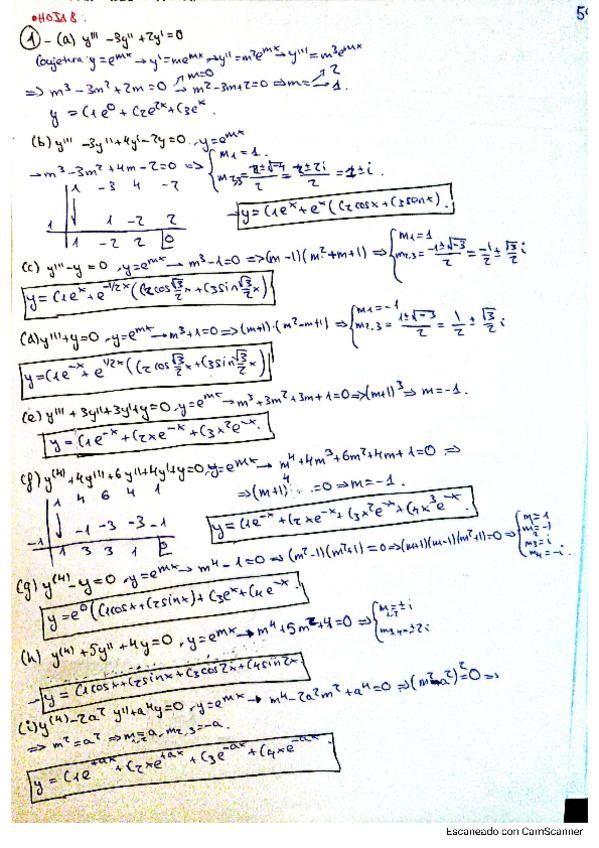 • HOJA 8.
59
① - (a) y''' - 3y'' + 2y' = 0
Conjetura: y = e^{mx} → y' = me^{mx} → y'' = m²e^{mx} → y''' = m³e^{mx}
⇒ m³ - 3m² + 2m = 0 ↗ m=0 → m² - 3m + 2 = 0 ⇒ m = ↗ 2 → 1.
y = C1e⁰ + C2e^{2x} + C3e^x.
(b) y''' - 3y'' + 4y' - 2y = 0, y = e^{mx}
→ m³ - 3m² + 4m - 2 = 0 ⇒ { m1 = 1. m2,3 = 2±√-4/2 = 2±2i/2 = 1±i.
1 -3 4 -2
1 1 -2 2
1 -2 2 0
→ y = C1e^x + e^x(C2cosx + C3senx).
(c) y''' - y = 0, y = e^{mx} → m³ - 1 = 0 ⇒ (m-1)(m²+m+1) ⇒ { m1 = 1 m2,3 = -1±√-3/2 = -1/2 ± √3/2 i
y = C1e^x + e^{-1/2x}(C2cos√3/2x + C3sin√3/2x)
(d) y''' + y = 0, y = e^{mx} → m³ + 1 = 0 ⇒ (m+1)·(m²-m+1) ⇒ { m1 = -1 m2,3 = 1±√-3/2 = 1/2 ± √3/2 i
y = C1e^{-x} + e^{1/2x}(C2cos√3/2x + C3sin√3/2x)
(e) y''' + 3y'' + 3y' + y = 0, y = e^{mx} → m³ + 3m² + 3m + 1 = 0 ⇒ (m+1)³ ⇒ m = -1.
y = C1e^{-x} + C2xe^{-x} + C3x²e^{-x}.
(f) y^{(4)} + 4y''' + 6y'' + 4y' + y = 0, y = e^{mx} → m⁴ + 4m³ + 6m² + 4m + 1 = 0 ⇒
1 4 6 4 1
⇒ (m+1)⁴ = 0 ⇒ m = -1.
-1 -1 -3 -3 -1
1 3 3 1 0
y = C1e^{-x} + C2xe^{-x} + C3x²e^{-x} + C4x³e^{-x}.
(g) y^{(4)} - y = 0, y = e^{mx} → m⁴ - 1 = 0 ⇒ (m²-1)(m²+1) = 0 ⇒ (m+1)(m-1)(m²+1) = 0 ⇒ { m1 = 1 m2 = -1 m3 = i m4 = -i.
y = e⁰(C1cosx + C2sinx) + C3e^x + C4e^{-x}
(h) y^{(4)} + 5y'' + 4y = 0, y = e^{mx} → m⁴ + 5m² + 4 = 0 ⇒ { m1,2 = ±i m3,4 = ±2i
→ y = C1cosx + C2sinx + C3cos2x + C4sin2x.
(i) y^{(4)} - 2a²y'' + a⁴y = 0, y = e^{mx} → m⁴ - 2a²m² + a⁴ = 0 ⇒ (m²-a²)² = 0 ⇒
⇒ m² = a² ⇒ m1,2 = a, m2,3 = -a.
y = C1e^{+ax} + C2xe^{+ax} + C3e^{-ax} + C4xe^{-ax}
Escaneado con CamScanner